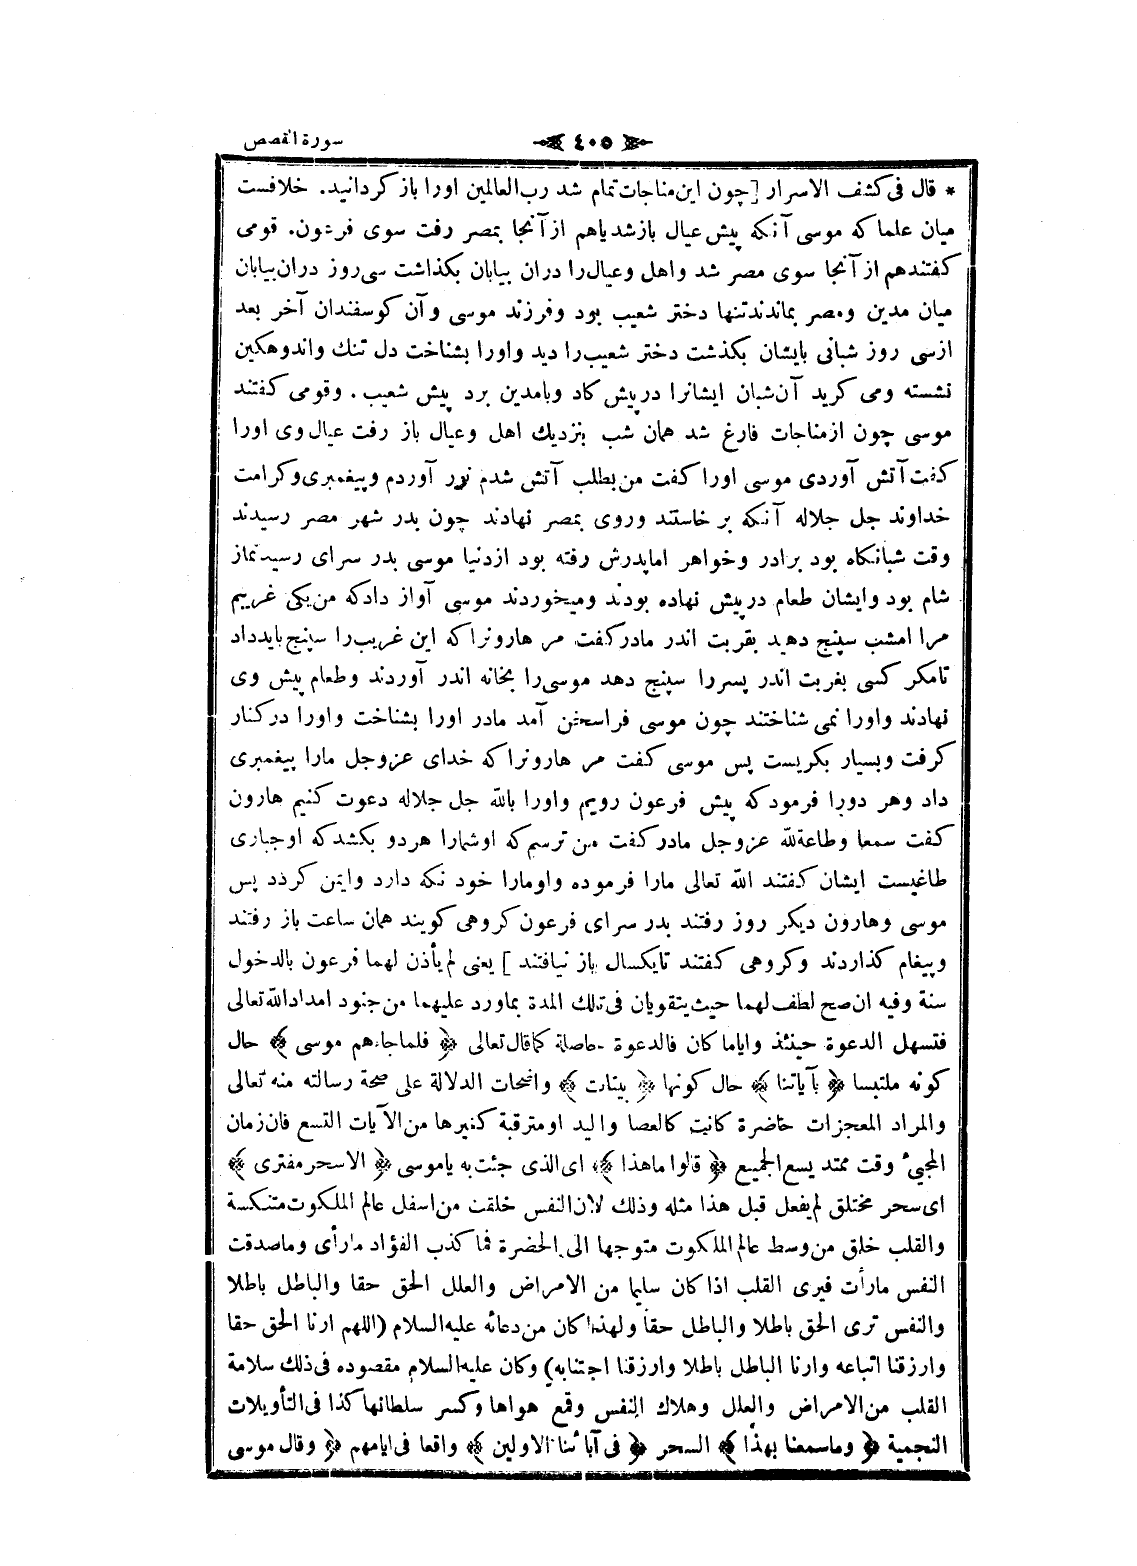 سورة القصص ﴿ ٤٠٥ ﴾
* قال فى كشف الاسرار [چون اين مناجات تمام شد رب العالمين اورا باز كردانيد. خلافست
ميان علما كه موسى آنكه پيش عيال باز شد ياهم از آنجا بمصر رفت سوى فرعون. قومى
كفتند هم از آنجا سوى مصر شد واهل وعيال را دران بيابان بكذاشت سى روز دران بيابان
ميان مدين ومصر بماندند تنها دختر شعيب بود وفرزند موسى وآن كوسفندان آخر بعد
ازسى روز شبانى بايشان بكذشت دختر شعيب را ديد واورا بشناخت دل تنك واندوهكين
نشسته ومى كريد آن شبان ايشانرا در پيش كاد وبامدين برد پيش شعيب. وقومى كفتند
موسى چون از مناجات فارغ شد همان شب بنزديك اهل وعيال باز رفت عيال وى اورا
كفت آتش آوردى موسى اورا كفت من بطلب آتش شدم نور آوردم وپيغمبرى وكرامت
خداوند جل جلاله آنكه بر خاستند وروى بمصر نهادند چون بدر شهر مصر رسيدند
وقت شبانكاه بود برادر وخواهر اما پدرش رفته بود ازدنيا موسى بدر سراى رسيد نماز
شام بود وايشان طعام در پيش نهاده بودند وميخوردند موسى آواز داد كه من يكى غريبم
مرا امشب سپنج دهيد بقربت اندر مادر كفت مر هارونرا كه اين غريب را سپنج بايد داد
تامكر كسى بغربت اندر پسررا سپنج دهد موسى را بخانه اندر آوردند وطعام پيش وى
نهادند واورا نمى شناختند چون موسى فراسخن آمد مادر اورا بشناخت واورا دركنار
كرفت وبسيار بكريست پس موسى كفت مر هارونرا كه خداى عز وجل مارا پيغمبرى
داد وهر دورا فرمود كه پيش فرعون رويم واورا بالله جل جلاله دعوت كنيم هارون
كفت سمعا وطاعة لله عز وجل مادر كفت من ترسم كه او شمارا هردو بكشد كه او جبارى
طاغيست ايشان كفتند الله تعالى مارا فرموده واومارا خود نكه دارد وايمن كردد پس
موسى وهارون ديكر روز رفتند بدر سراى فرعون كروهى كويند همان ساعت باز رفتند
وپيغام كذاردند وكروهى كفتند تايكسال باز نيافتند ] يعنى لم يأذن لهما فرعون بالدخول
سنة وفيه ان صح لطف لهما حيث يتقويان فى تلك المدة بماورد عليهما من جنود امداد الله تعالى
فتسهل الدعوة حينئذ واياما كان فالدعوة حاصلة كما قال تعالى ﴿ فلما جاءهم موسى ﴾ حال
كونه ملتبسا ﴿ بآياتنا ﴾ حال كونها ﴿ بينات ﴾ واضحات الدلالة على صحة رسالته منه تعالى
والمراد المعجزات حاضرة كانت كالعصا واليد او مترقبة كغيرها من الآيات التسع فان زمان
المجيئ وقت ممتد يسع الجميع ﴿ قالوا ماهذا ﴾ اى الذى جئت به ياموسى ﴿ الا سحر مفترى ﴾
اى سحر مختلق لم يفعل قبل هذا مثله وذلك لان النفس خلقت من اسفل عالم الملكوت متنكسة
والقلب خلق من وسط عالم الملكوت متوجها الى الحضرة فما كذب الفؤاد مارأى وماصدقت
النفس مارأت فيرى القلب اذا كان سليما من الامراض والعلل الحق حقا والباطل باطلا
والنفس ترى الحق باطلا والباطل حقا ولهذا كان من دعائه عليه السلام (اللهم ارنا الحق حقا
وارزقنا اتباعه وارنا الباطل باطلا وارزقنا اجتنابه) وكان عليه السلام مقصوده فى ذلك سلامة
القلب من الامراض والعلل وهلاك النفس وقمع هواها وكسر سلطانها كذا فى التأويلات
النجمية ﴿ وماسمعنا بهذا ﴾ السحر ﴿ فى آبائنا الاولين ﴾ واقعا فى ايامهم ﴿ وقال موسى